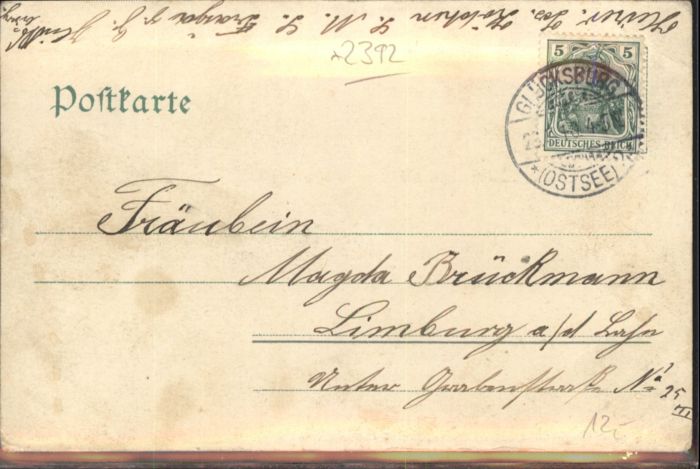 S. M. S.
*2392
Postkarte
5 5
DEUTSCHES REICH
GLÜCKSBURG
*(OSTSEE)
Fräulein
Magda Brückmann
Limburg a/d Lahn
Unter Grabenstraße No 25
III
12,-